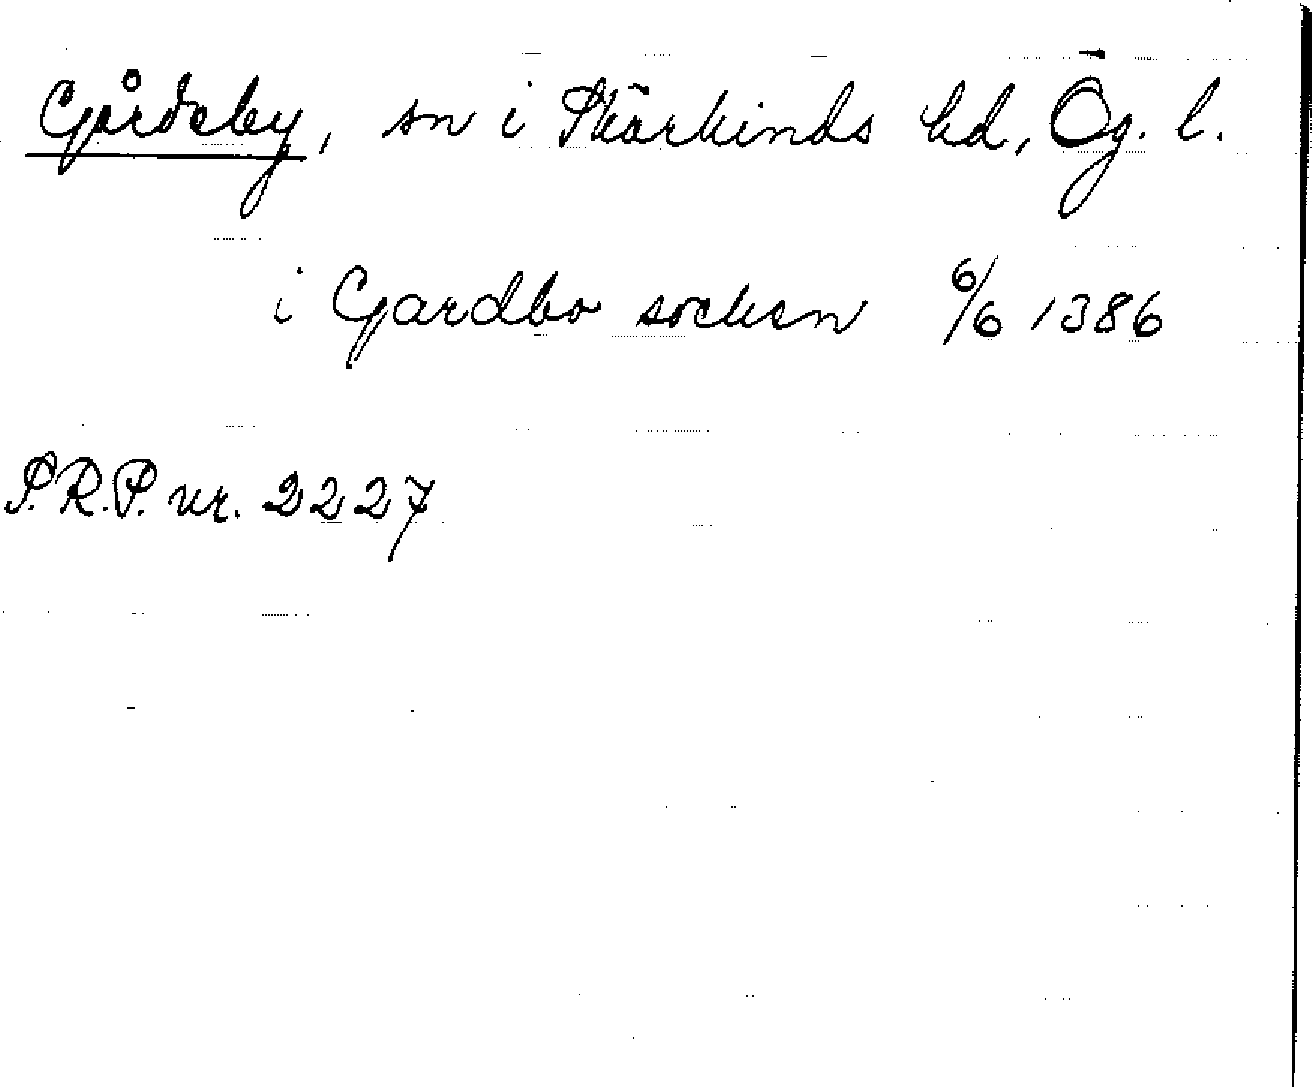 Gårdeby, sn i Skärkinds hd, Ög. l.
i Gardbo socken 6/6 1386
S.R.P. nr. 2227